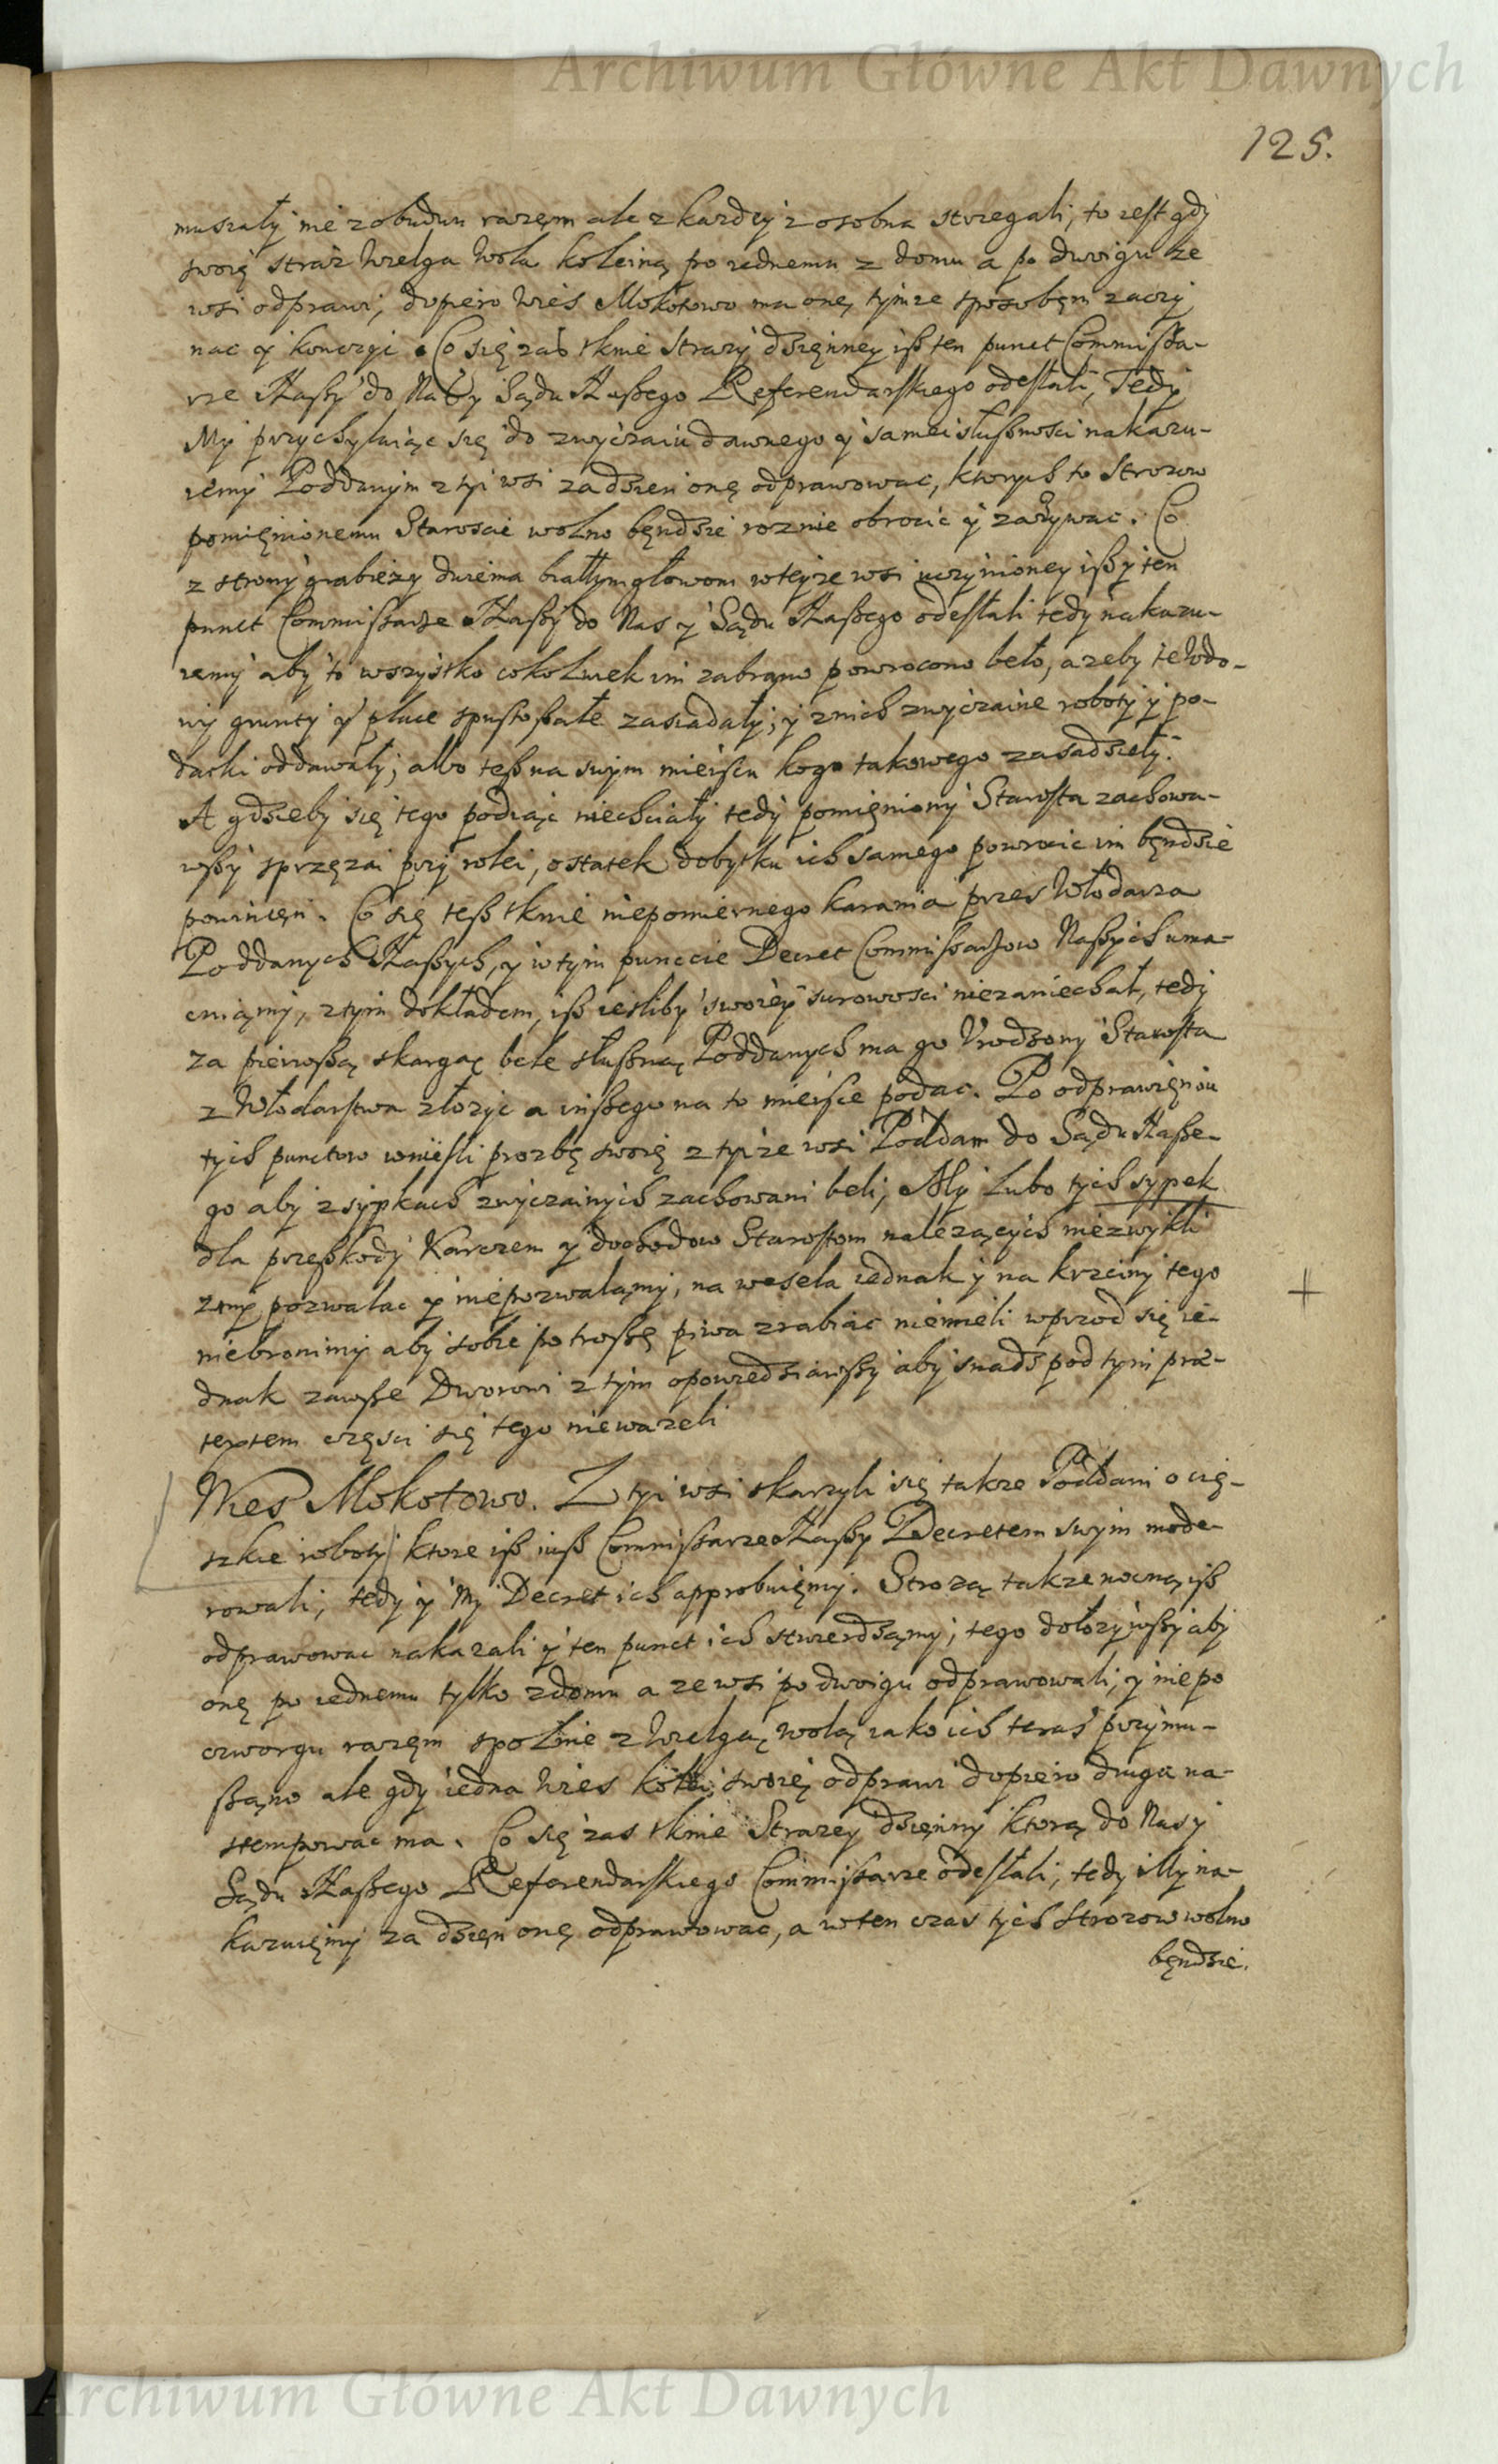 Archiwum Główne Akt Dawnych
125.
musiały nie zobudwu razęm ale z kazdey z osobna strzegali, to iest gdy
swoię straż Wielga Wola koleiną po iednemu z domu a po dwoigu ze
wsi odprawi, dopiero Wies Mokotowo ma onę tymze sposobęm zaczy
nac y konczyc. Co się zas tknie strazy dzięnney iß ten punct Commissa-
rze Naßy do Nas y Sądu Naßego Referendarskiego odesłali, Tedy
My przychylaiąc się do zwyczaiu dawnego y samei słußnosci nakazu-
iemy Poddanym z tyi wsi za dzien onę odprawowac, ktorych to Strozow
pomięnionemu Staroscie wolno bęndzie roznie obrocic y zazywac. Co
z strony grabiezy dwiema białymgłowom w teyze wsi uczynioney iß y ten
punct Commissarze Naßy do Nas y Sądu Naßego odesłali tedy nakazu-
iemy aby to wszystko cokolwiek im zabrano powrocono beło, a zeby te Wdo-
wy grunty y place spustoßałe zasiadały, y z nich zwyczaine roboty y po-
datki oddawały, albo teß na swym mieiscu kogo takowego zasadzieły.
A gdzieby się tego podiąc niechciały tedy pomięniony Starosta zachowa-
wßy sprzęzai przy rolei, ostatek dobytku ich samego powrocic im bęndzie
powinięn. Co się teß tknie niepomiernego karania przes Włodarza
Poddanych Naßych, y w tym punccie Decret Commissarzow Naßych uma-
cniamy, z tym dokładem, iß iesliby swoiey surowosci niezaniechał, tedy
za pierwßą skargą bele słußną Poddanych ma go Urodzony Starosta
z Włodarstwa złozyc a inßego na to mieisce podac. Po odprawięniu
tych punctow wniesli prozbę swoię z tyize wsi Poddani do Sądu Naße-
go aby z sypkach zwyczainych zachowani beli, My Lubo tych sypek
dla przeßkody Karczem y dochodow Starostom nalezących niezwykli
zmy pozwalac y niepozwalamy, na wesela iednak y na krzciny tego
niebronimy aby sobie po troßę piwa zrabiac niemieli wprzod się ie-
dnak zawße Dworowi z tym opowiedziawßy aby snadz pod tym prae-
textem częsci się tego niewazeli
Wies Mokotowo. Z tyi wsi skarzyli się takze Poddani o cię-
szkie roboty ktore iß iuß Commissarze Naßy Decretem swym mode-
rowali, tedy y My Decret ich approbuięmy. Strozą takze nocną iß
odprawowac nakazali y ten punct ich stwierdzamy, tego dołozywßy aby
onę po iednemu tylko z domu a ze wsi po dwoigu odprawowali, y nie po
czworgu razęm spolnie z Wielgą Wolą iako ich teras przymu-
ßano ale gdy iedna Wies kolei swoię odprawi dopiero druga na-
stempowac ma. Co się zas tknie Strazey dzięnny ktorą do Nas y
Sądu Naßego Referendarskiego Commissarze odesłali, tedy i My na-
kazuięmy za dzięn onę odprawowac, a w ten czas tych strozow wolno
bęndzie.
Archiwum Główne Akt Dawnych